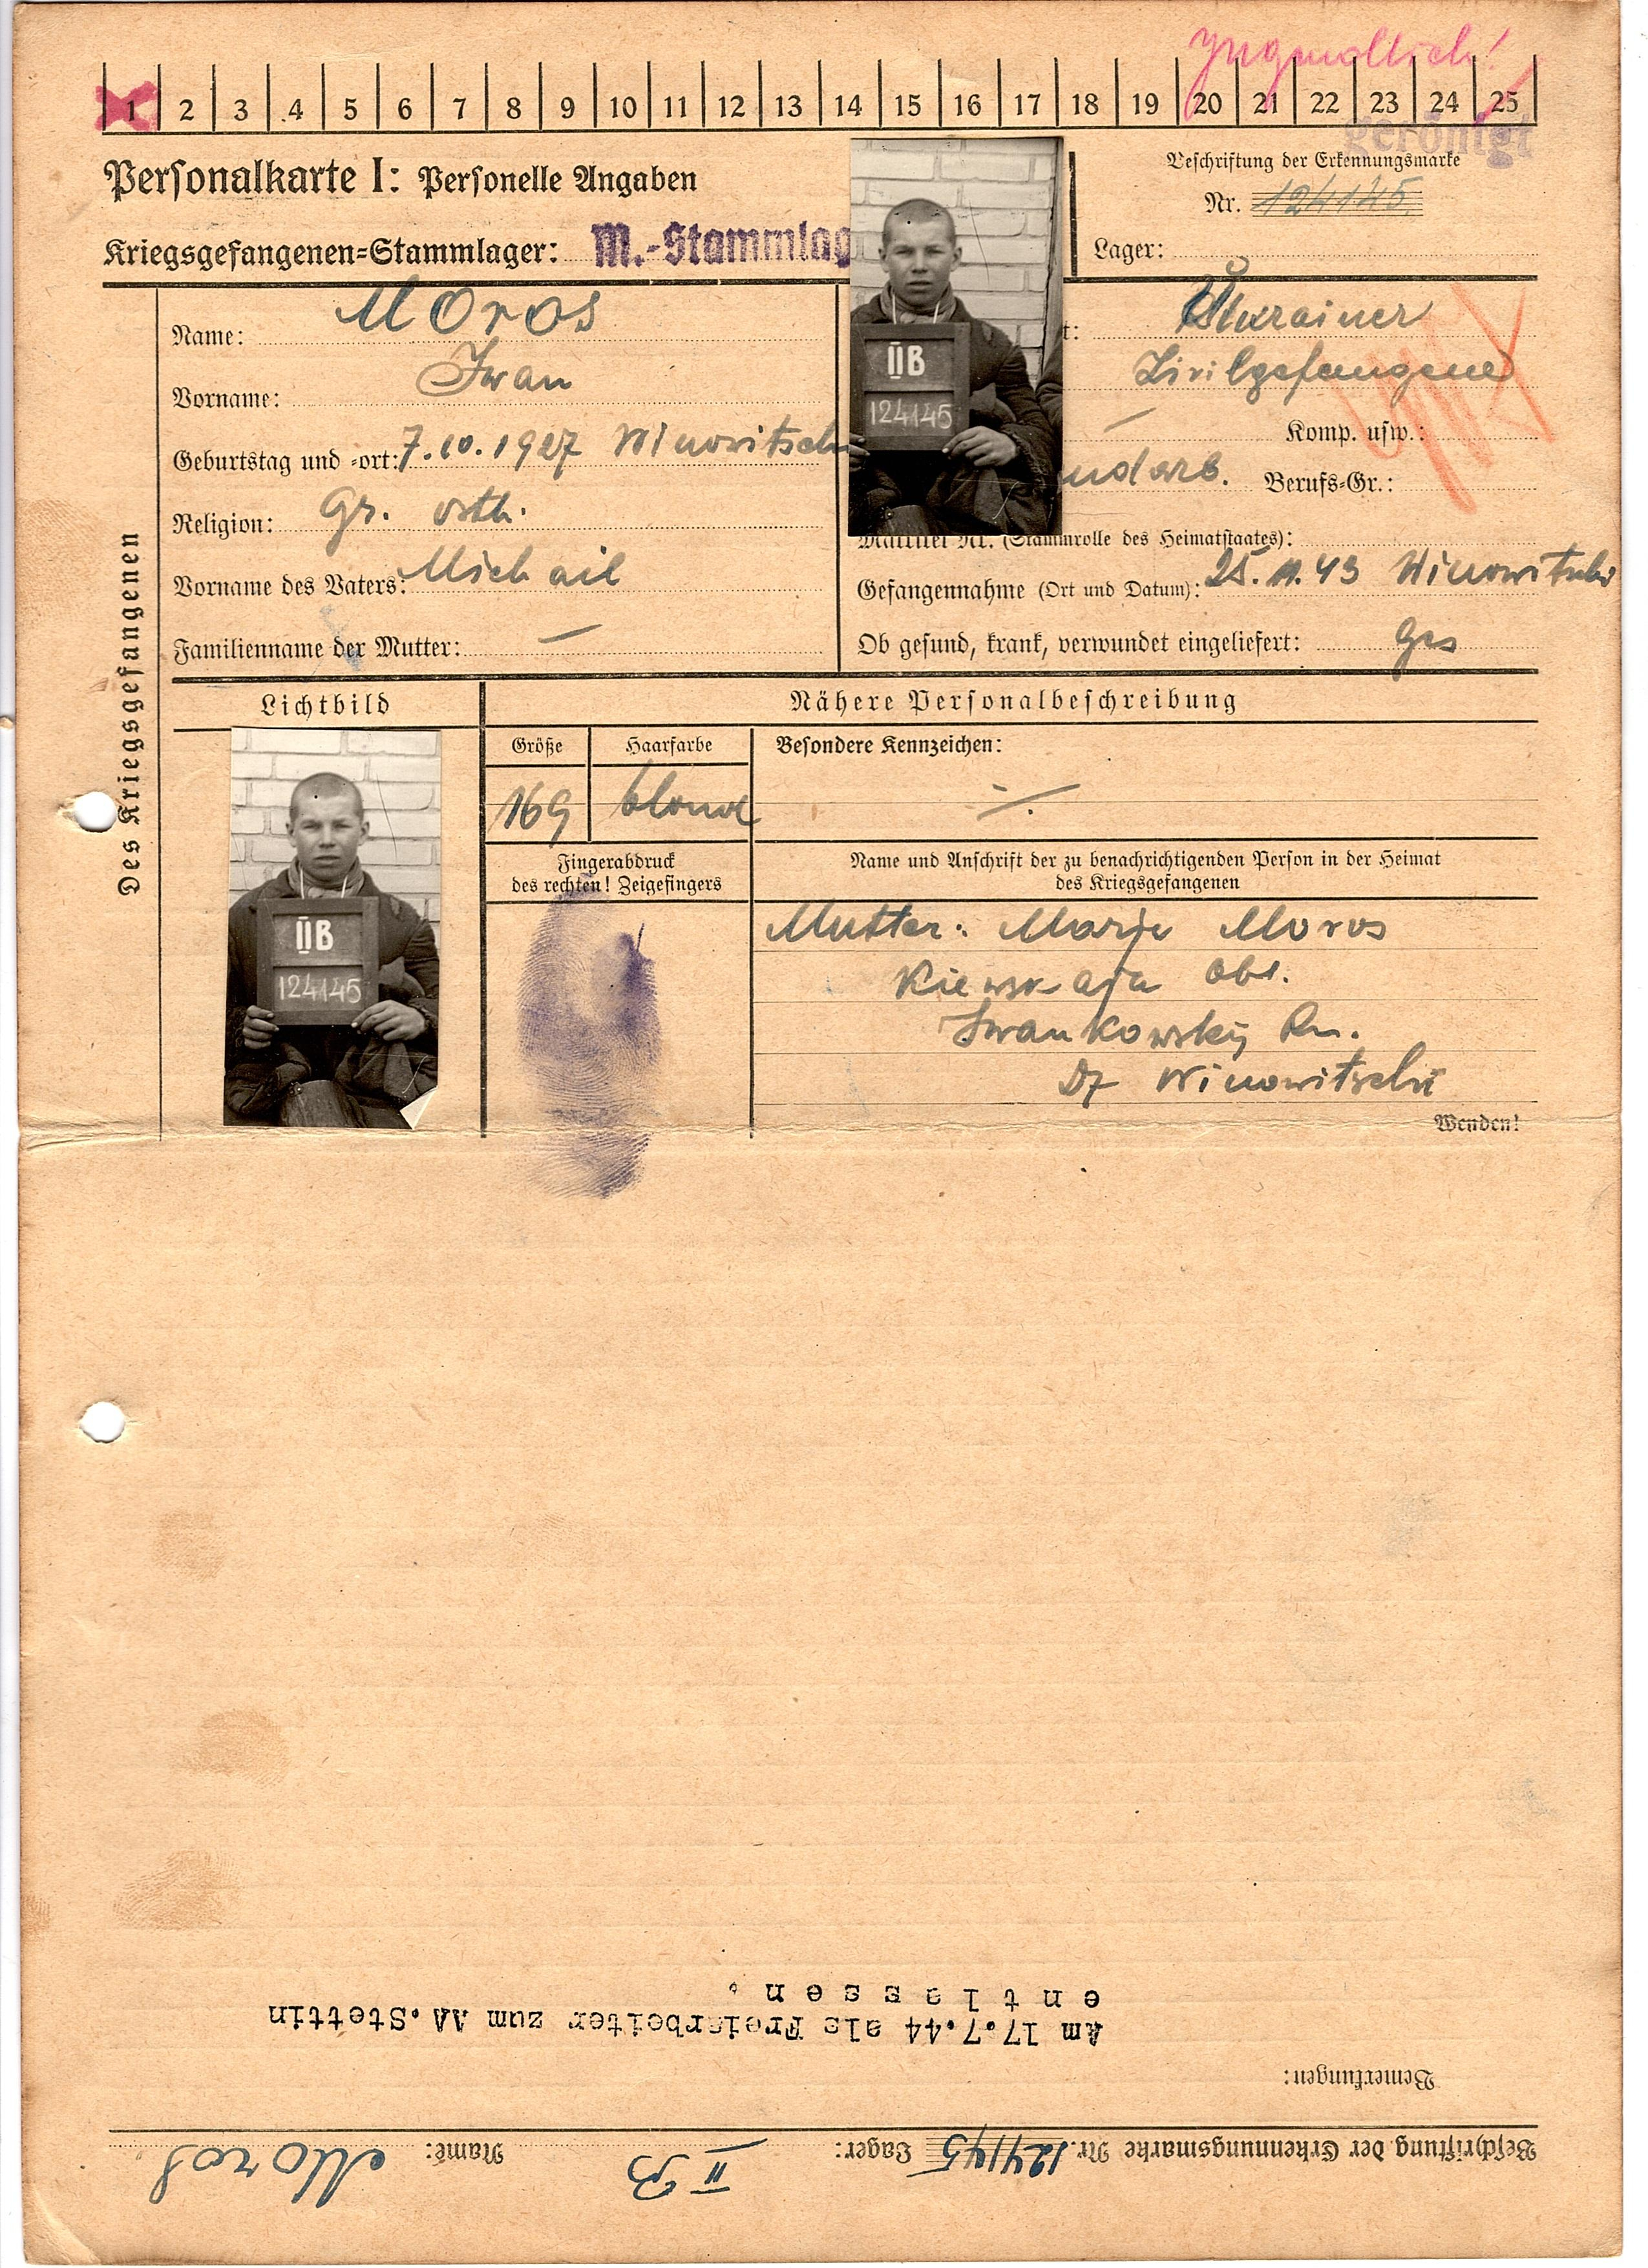 Jugendlich!
1 2 3 4 5 6 7 8 9 10 11 12 13 14 15 16 17 18 19 20 21 22 23 24 25
geröntgt
Personalkarte I: Personelle Angaben
Beschriftung der Erkennungsmarke
Nr. 124145
Kriegsgefangenen-Stammlager: M.-Stammlag
Lager:
Des Kriegsgefangenen
Name: Moros
Vorname: Iwan
Geburtstag und -ort: 7.10.1927 Winowitschi
Religion: Gr. orth.
Vorname des Vaters: Michail
Familienname der Mutter: —
II B
124145
t: Ukrainer
Zivilgefangene
Komp. usw.:
ndarb. Berufs-Gr.:
Matrikel Nr. (Stammrolle des Heimatstaates):
Gefangennahme (Ort und Datum): 25.11.43 Winowitschi
Ob gesund, krank, verwundet eingeliefert: ges
Lichtbild
Nähere Personalbeschreibung
Größe Haarfarbe Besondere Kennzeichen:
169 blond
II B
124145
Fingerabdruck
des rechten! Zeigefingers
Name und Anschrift der zu benachrichtigenden Person in der Heimat
des Kriegsgefangenen
Mutter: Marja Moros
Kiewskaja Obl.
Iwankowskij Rn.
Df Winowitschi
Wenden!
Beschriftung der Erkennungsmarke Nr. 124145 Lager: II B Name: Moros
Bemerkungen:
Am 17.7.44 als Freiarbeiter zum AA.Stettin
entlassen.